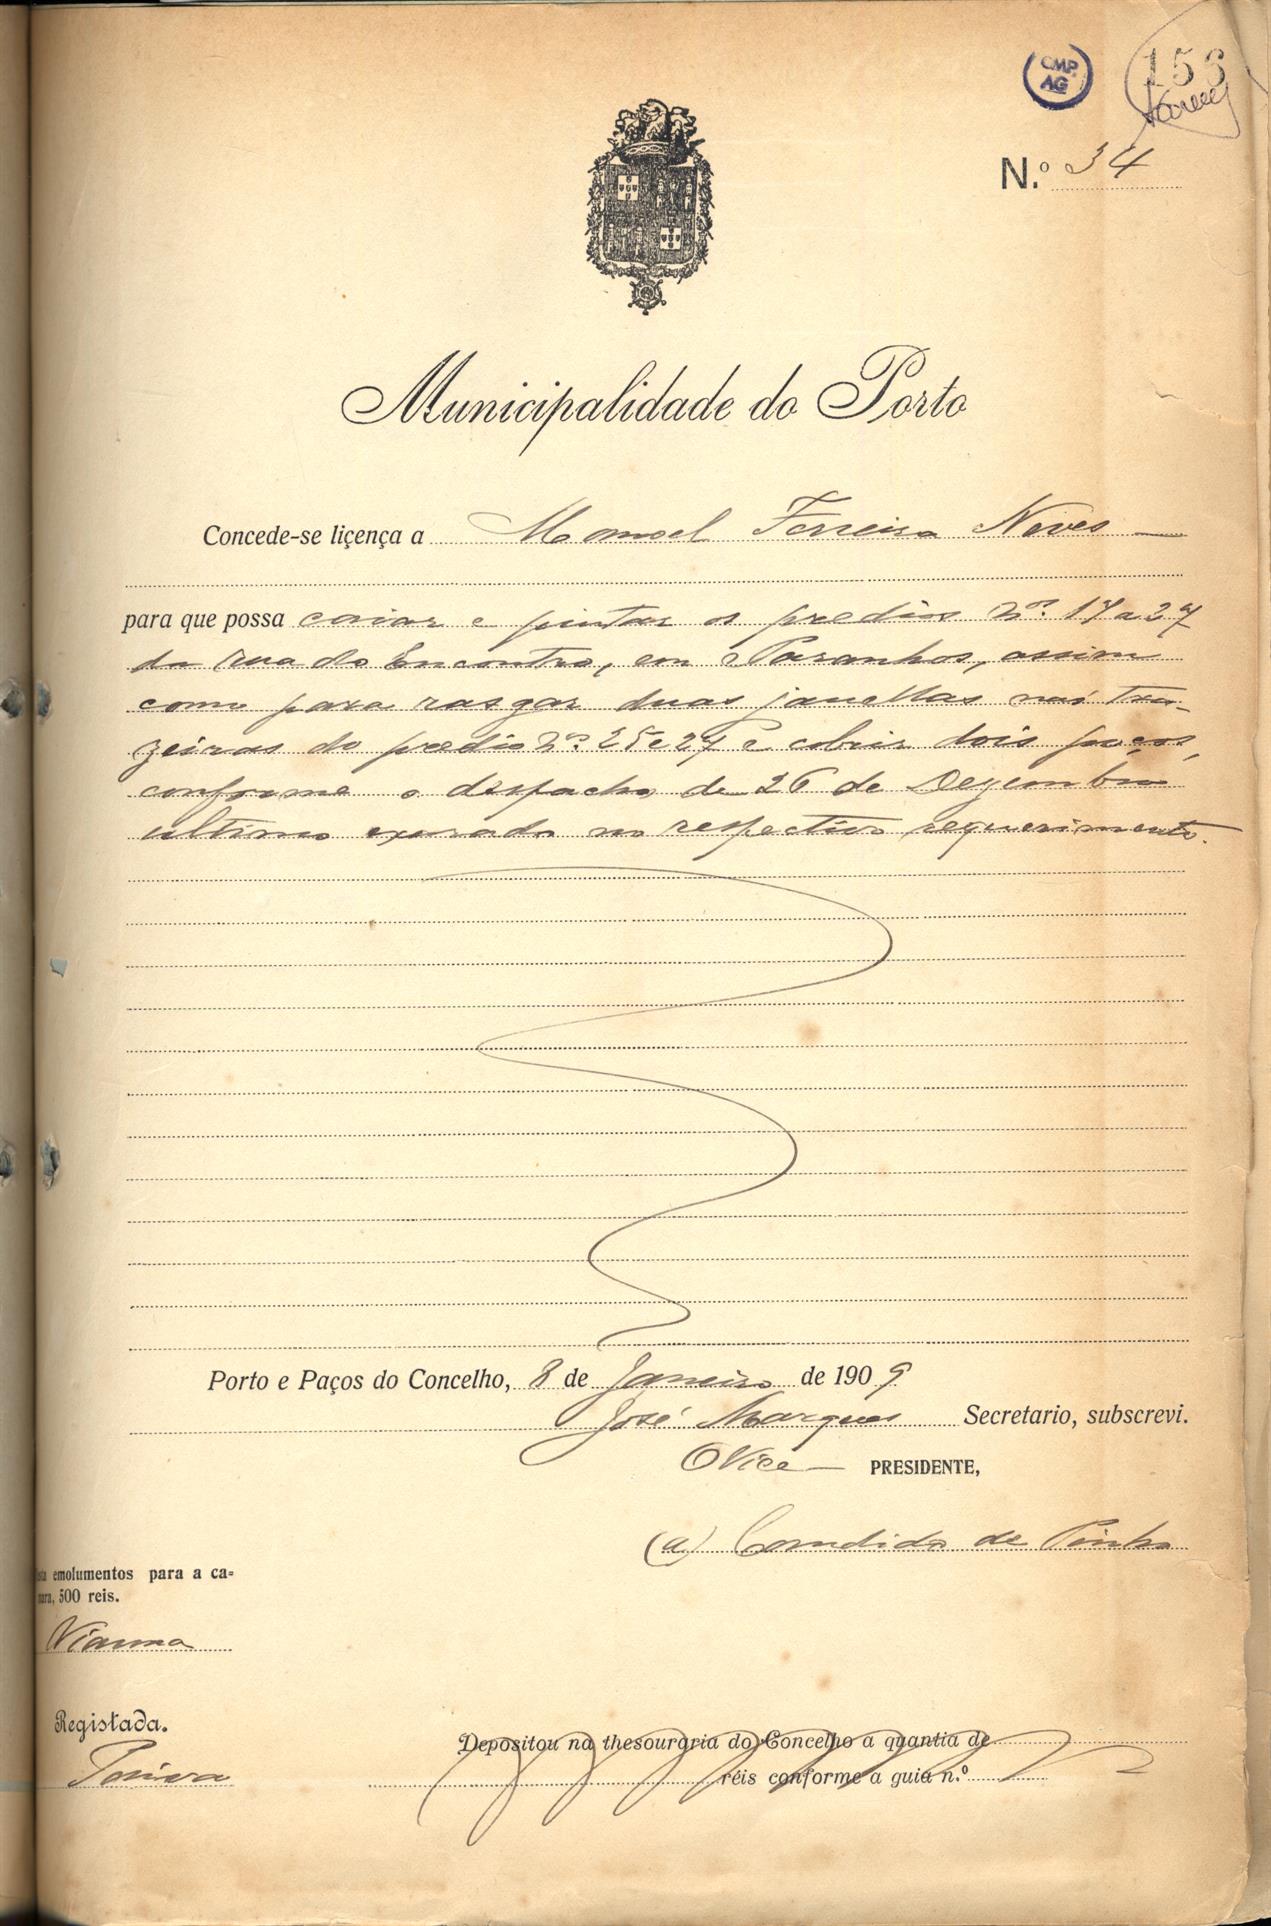 CMP.
AG
156
N.º 34
Municipalidade do Porto
Concede-se liçença a Manoel Ferreira Neves
para que possa caiar e pintar os predios nos. 17 a 27
da rua do Encontro, em Paranhos, assim
como para rasgar duas janellas nas tra-
zeiras do predio nos. 25 e 27 e cobrir dois poços,
conforme o despacho de 26 de Dezembro
ultimo exarado no respectivo requerimento.
Porto e Paços do Concelho, 8 de Janeiro de 1909
José Marques Secretario, subscrevi.
O Vice- PRESIDENTE,
(a) Candido de Pinho
emolumentos para a ca=
mara, 500 reis.
Vianna
Registada.
Depositou na thesouraria do Concelho a quantia de
réis conforme a guia n.º